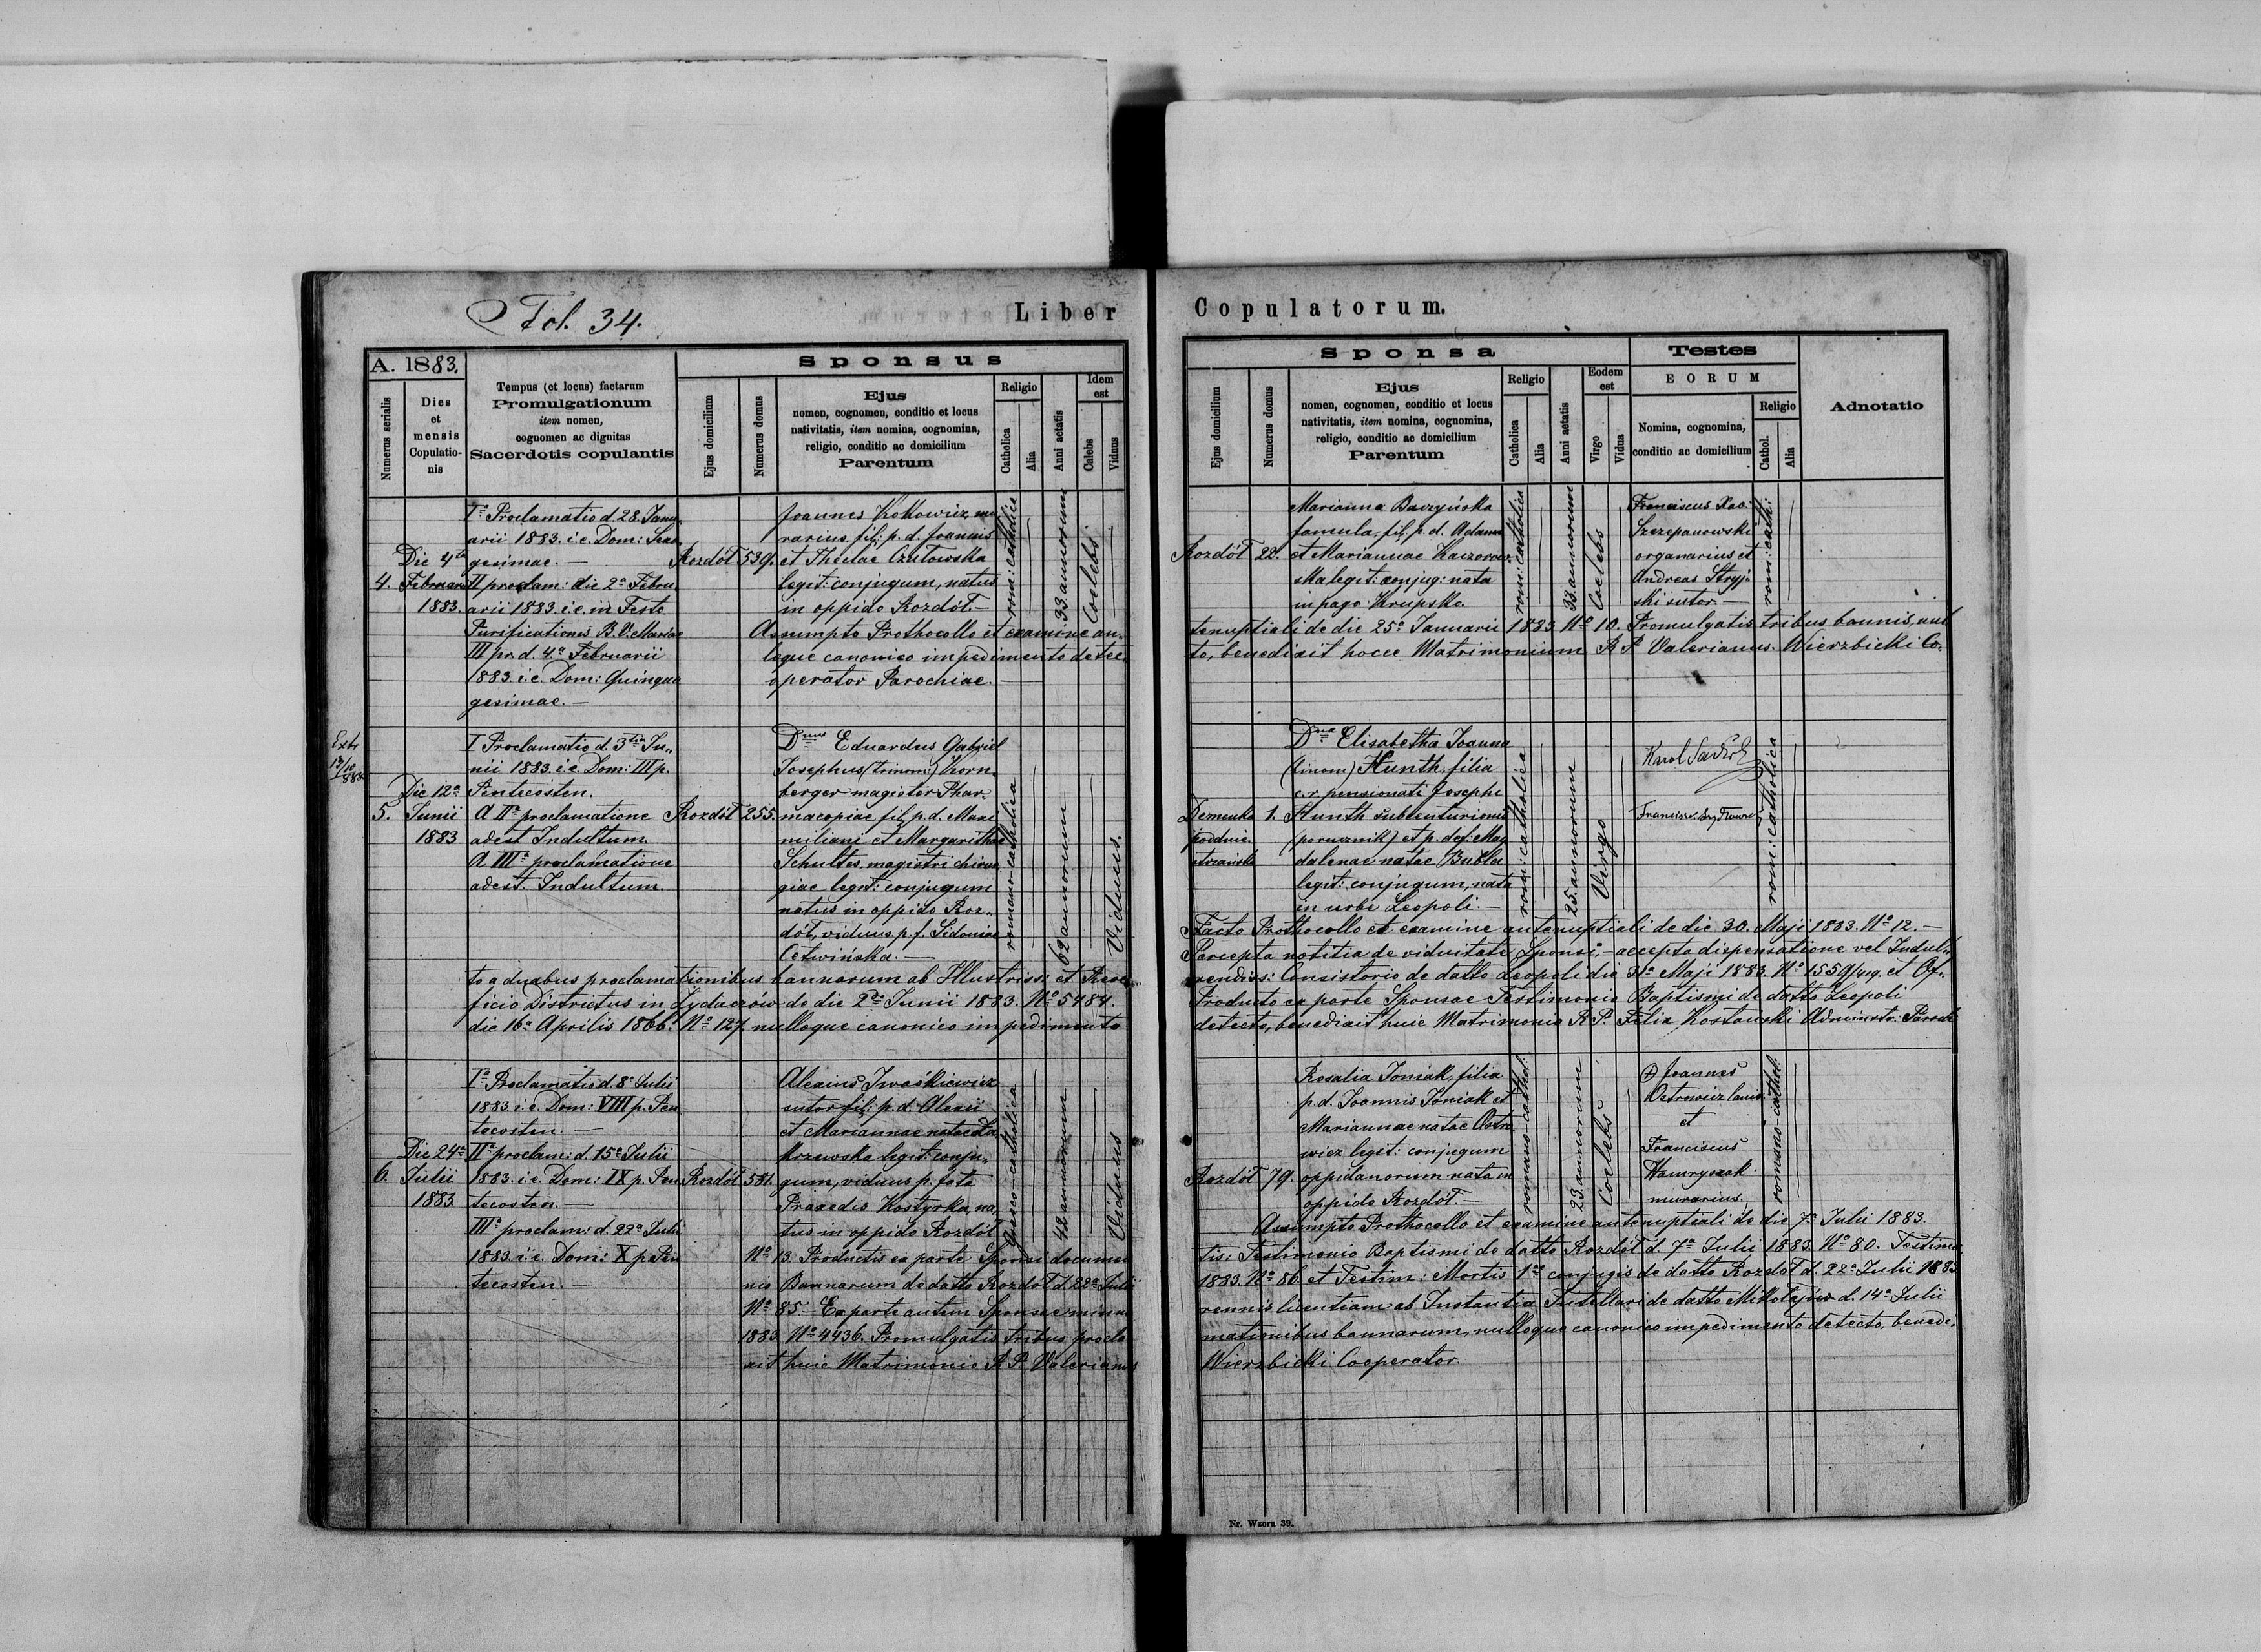 Fol. 34.
Liber Copulatorum.
A. 1883.
Numerus serialis
Dies
et
mensis
Copulatio-
nis
Tempus (et locus) factarum
Promulgationum
item nomen,
cognomen ac dignitas
Sacerdotis copulantis
Sponsus
Ejus domicilium
Numerus domus
Ejus
nomen, cognomen, conditio et locus
nativitatis, item nomina, cognomina,
religio, conditio ac domicilium
Parentum
Religio
Catholica
Alia
Anni aetatis
Idem
est
Calebs
Viduus
Sponsa
Ejus domicilium
Numerus domus
Ejus
nomen, cognomen, conditio et locus
nativitatis, item nomina, cognomina,
religio, conditio ac domicilium
Parentum
Religio
Catholica
Alia
Anni aetatis
Eodem
est
Virgo
Vidua
Testes
EORUM
Nomina, cognomina,
conditio ac domicilium
Religio
Cathol.
Alia
Adnotatio
4.
Die 4ta
Februarii
1883.
Ia Proclamatio d. 28. Janu-
arii 1883. i.e. Dom: Sexa
gesimae. —
II proclam: die 2a Febru-
arii 1883. i.e. in Festo
Purificationis B.V. Mariae
III pr. d. 4a Februarii
1883. i.e. Dom: Quinqua
gesimae. —
Rozdół 539.
Joannes Kokowicz mu-
rarius, fil: p. d. Joannis
et Theclae Czutowska
legit: conjugum, natus
in oppido Rozdół. —
rom: catholica
33 annorum
Coelebs
Rozdół 22.
Marianna Baczyńska
famula, fil, p. d. Adami
et Mariannae Kaczorow-
ska legit: conjug: nata
in pago Krupsko.
rom: catholica
33 annorum
Coelebs
Franciscus Xav.
Szczepanowski
organarius et
Andreas Stryj-
ski sutor. —
rom: cath:
Assumpto Prothocollo et examine an- tenuptiali de die 25a Januarii 1883 No 10. Promulgatis tribus bannis, nul
loque canonico impedimento detec- to, benedixit hocce Matrimonium R. P. Valerianus Wierzbicki Co-
operator Parochiae.
Extr
13/10
883
5.
Die 12a
Junii
1883
I Proclamatio d. 3tia Ju-
nii 1883. i.e. Dom: III p.
Pentecosten.
A IIa proclamatione
adest Indultum.
A IIIa proclamatione
adest Indultum.
Rozdół 255.
Dnus Eduardus Gabriel
Josephus (trinom:) Korn-
berger magister Phar-
macopiae fil, p. d. Maxi
miliani et Margarithae
Schultes, magistri chirur
giae legit: conjugum
natus in oppido Roz-
dół, viduus p. f. Sidoniae
Cetwińska. —
romano-catholica
62 annorum
Viduus.
Demenka
poddnie-
strzańska
1.
Dna Elisabetha Joanna
(binom) Hunth, filia
c. r. pensionati Josephi
Hunth subcenturionis
(porucznik) et p. def. Mag
dalenae natae Bubla
legit: conjugum, nata
in urbe Leopoli. —
rom: catholica
25 annorum
Virgo
rom: catholica
Facto Prothocollo et examine antenuptiali de die 30. Maji 1883. No 12. —
Percepta notitia de viduitate Sponsi, — accepta dispensatione vel Indul-
to a duabus proclamationibus bannarum ab Illustriss: et Reve- rendiss: Consistorio de datto Leopoli die 31a Maji 1883. No 1559/419. et Of-
ficio Districtus in Żydaczów de die 2a Junii 1883. No 5484. Producto ex parte Sponsae Testimonio Baptismi de datto Leopoli
die 16a Aprilis 1866. No 127. nulloque canonico impedimento detecto, benedixit huic Matrimonio R. P. Felix Kostański Administr: Paroch
6.
Die 24a
Julii
1883
Ia Proclamatio d. 8a Julii
1883 i.e. Dom: VIII p. Pen
tecosten. —
IIa proclam: d. 15a Julii
1883. i.e. Dom: IX p. Pen
tecosten. —
IIIa proclam: d. 22a Julii
1883. i.e. Dom: X p. Pen
tecosten. —
Rozdół 581.
Alexius Iwaśkiewicz
sutor fil: p. d. Alexii
et Mariannae natae
legit: conju-
gum, viduus p. fata
Praxedis Kostyrka, na-
tus in oppido Rozdół
graeco-catholica
48 annorum
Viduus
Rozdół 79.
Rosalia Joniak, filia
p. d. Joannis Joniak et
Mariannae natae Ostro
wicz legit: conjugum
oppidanorum nata in
oppido Rozdół. —
romano-cathol:
23 annorum
Coelebs
Joannes
Ostrowicz lanio
et
Franciscus
Hawryszak
murarius.
romano-cathol.
Assumpto Prothocollo et examine antenuptiali de die 7a Julii 1883.
No 13. Productis ex parte Sponsi documen- tis: Testimonio Baptismi de datto Rozdół d. 7a Julii 1883. No 80. Testimo
nio Bannarum de datto Rozdół d. 22a Julii 1883. No 86 et Testim: Mortis 1ae conjugis de datto Rozdół d. 22a Julii 1883
No 85. Ex parte autem Sponsae mino- rennis licentiam ab Instantia Tutellari de datto Mikołajów d. 14a Julii
1883 No 4436. Promulgatis tribus procla mationibus bannarum, nulloque canonico impedimento detecto, bene-di-
xit huic Matrimonio R. P. Valerianus Wierzbicki Cooperator.
Nr. Wzoru 39.